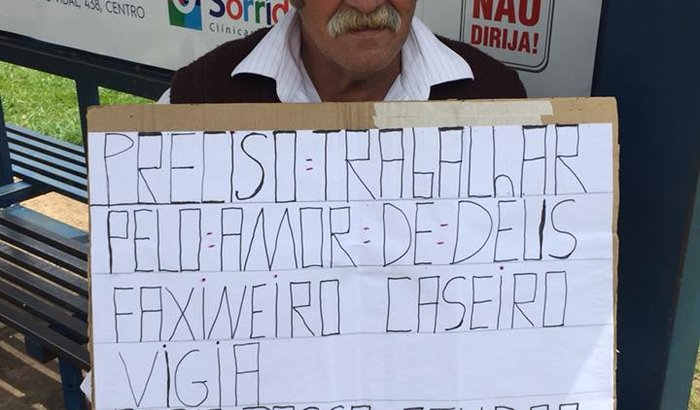 VIDAL, 458, CENTRO
Sorrid
Clínica
NÃO
DIRIJA!
PRECISO:TRABALHAR
PELO:AMOR:DE:DEUS
FAXINEIRO CASEIRO
VIGIA